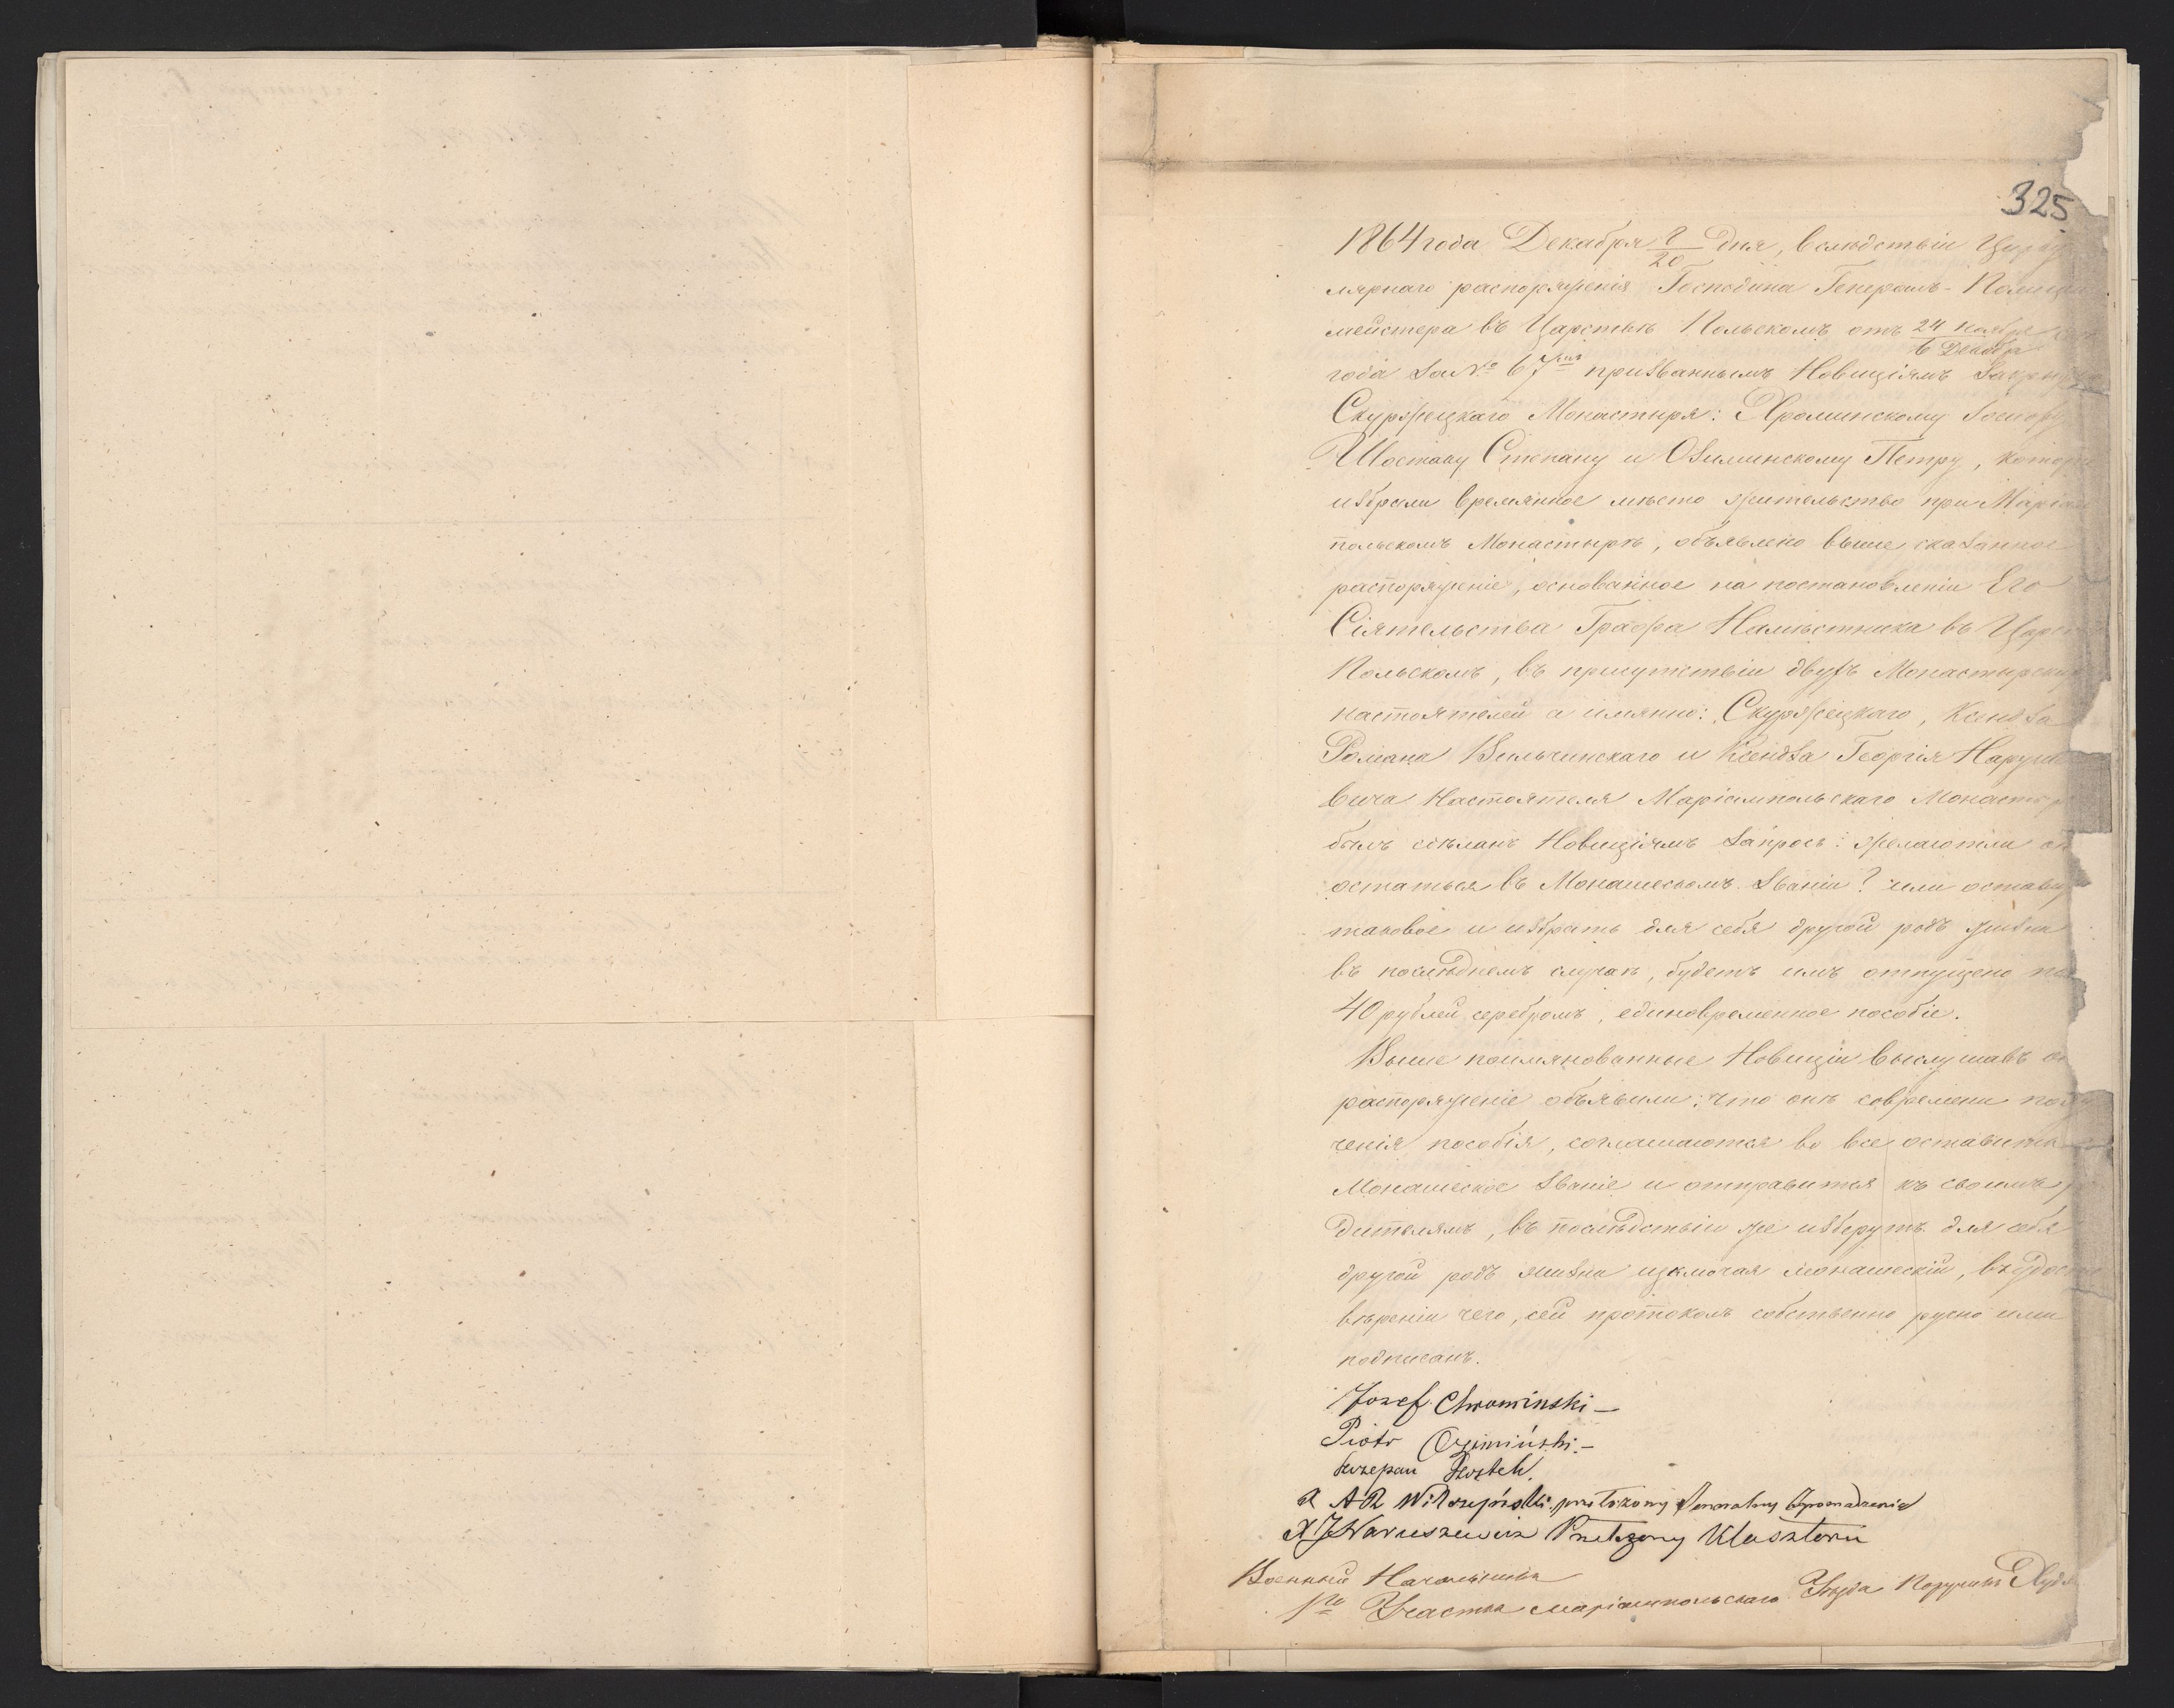 325
1864 года Декабря 8/20 дня, вслѣдствіи Цирку
лярнаго распоряженія Господина Генералъ-Полицій
мейстера въ Царствѣ Польскомъ отъ 24 Ноября/6 Декабря
года за № 67 призваннымъ Новиціямъ Закрыта
Скуржецкаго Монастыря: Хроминскому Іосифу
Шостаку Степану и Озиминскому Петру, которы
избрали времянное мѣсто жительство при Маріам
польскомъ Монастырѣ, объявлено выше сказанное
распоряженіе, основанное на постановленіи Его
Сіятельства Графа Намѣстника въ Царст
Польскомъ, въ присутствіи двухъ Монастырских
настоятелей а имянно: Скуржецкаго, Ксендза
Романа Вильчинскаго и Ксендза Георгія Наруше
вича Настоятеля Маріампольскаго Монастыр
былъ сдѣланъ Новиціямъ запросъ: желаютъ ли он
остаться въ Монашескомъ званіи? или оставит
таковое и избрать для себя другой родъ жизни
въ послѣднемъ случаѣ, будетъ имъ отпущено по
40 рублей серебромъ, единовременное пособіе.
Выше поимянованные Новиціи выслушавъ
распоряженіе объявили: что онѣ современи полу
ченія пособія, соглашаются во все оставить
Монашеское званіе и отправится къ своимъ ро
дителямъ, въ послѣдствіи же изберутъ для себя
другой родъ жизни изключая монашескій, въ удосто
вѣреніи чего, сей протоколъ собственно ручно ими
подписанъ.
Jozef Chrominski —
Piotr Ozimiński. —
Szczepan Szostek.
X A R Wilczyński przełożony Zgromadzenia
X J Naruszewicz Przełożony Klasztoru
Военный Начальникъ
1го Участка Маріампольскаго Уѣзда Поручикъ